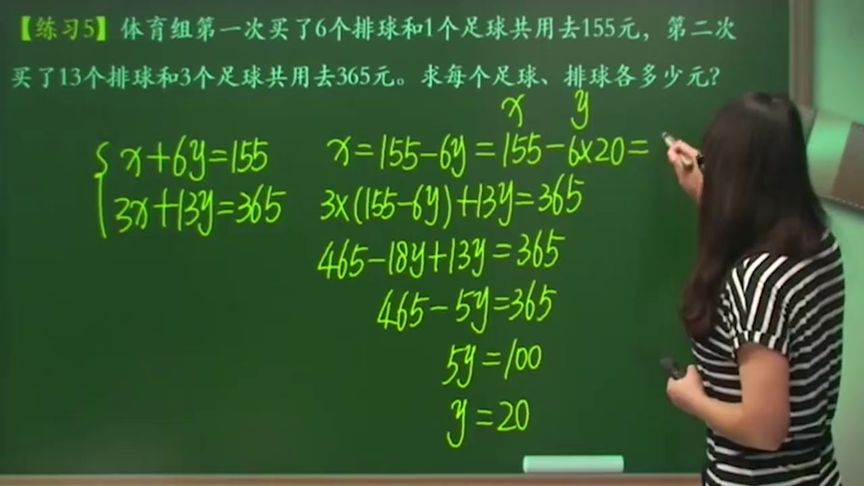 【练习5】体育组第一次买了6个排球和1个足球共用去155元，第二次
买了13个排球和3个足球共用去365元。求每个足球、排球各多少元？
x y
x+6y=155
3x+13y=365
x=155-6y=155-6×20=
3×(155-6y)+13y=365
465-18y+13y=365
465-5y=365
5y=100
y=20